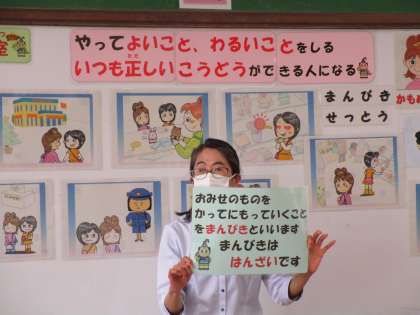 室
やってよいこと、わるいことをしる
いつも正しいこうどうができる人になる
まんびき
せっとう
かも
おみせのものを
かってにもっていくこと
をまんびきといいます
まんびきは
はんざいです